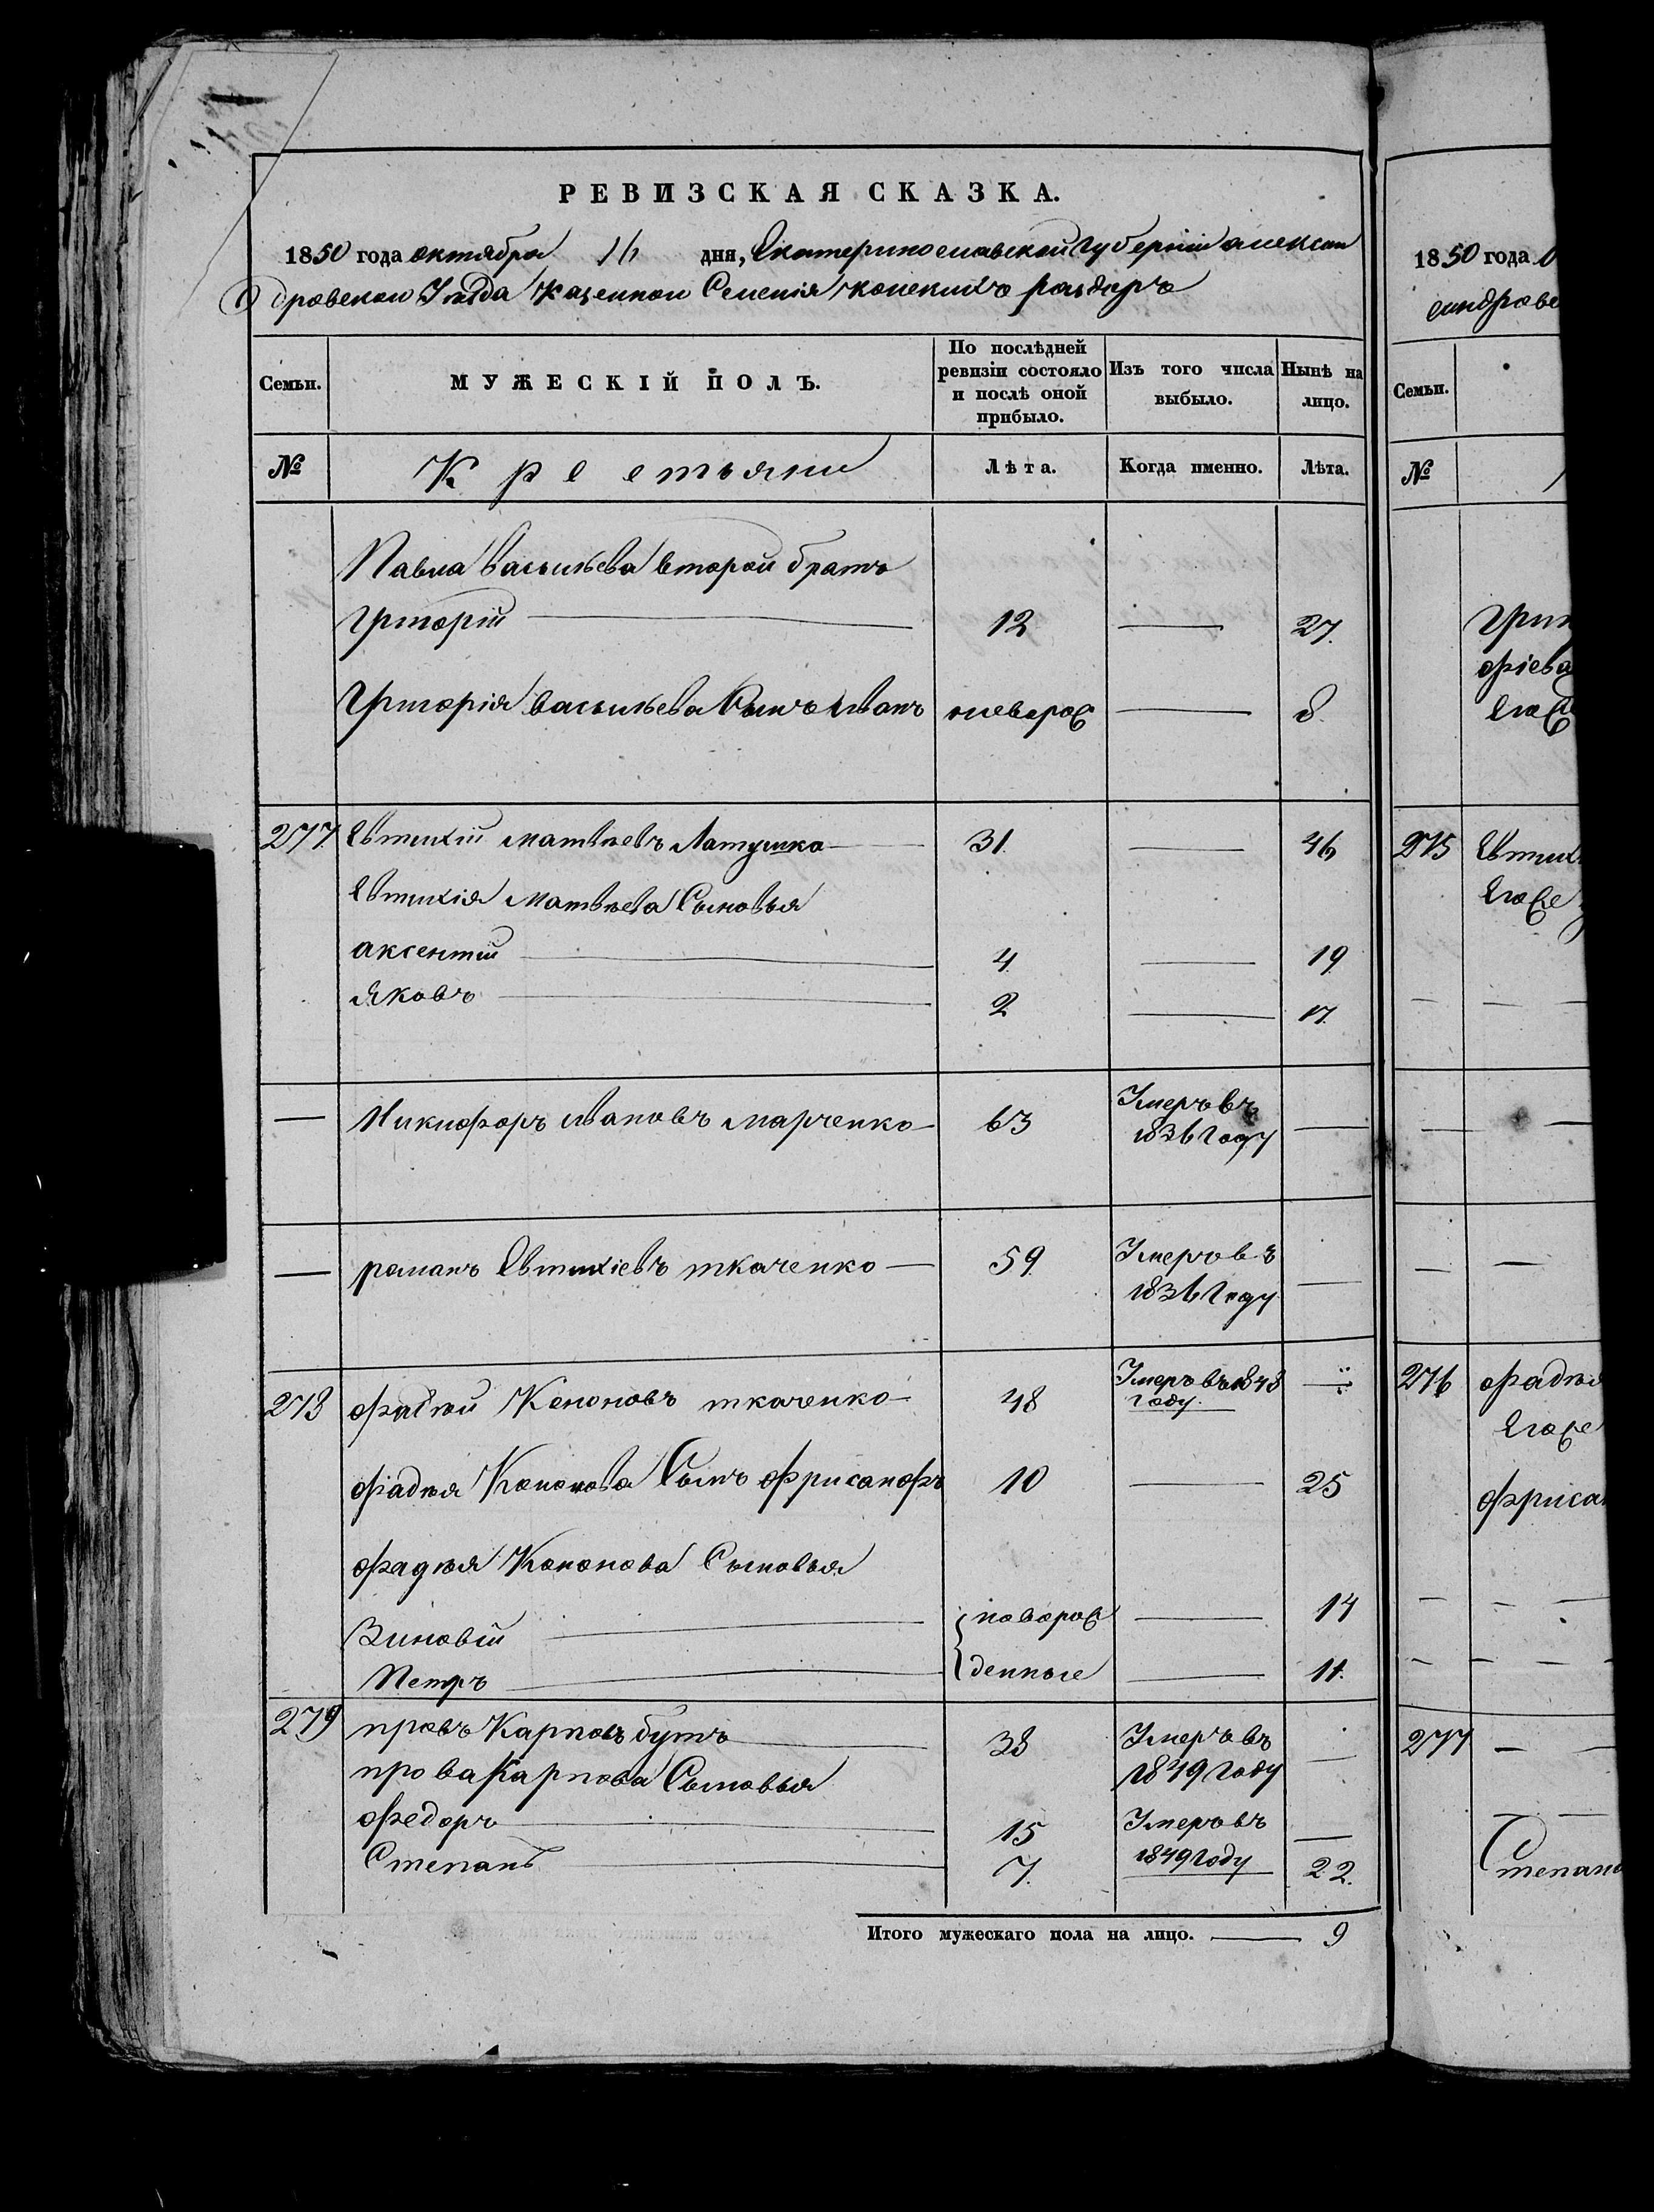 РЕВИЗСКАЯ СКАЗКА.
1850 года октября 16 дня, Екатеринославской Губернии Алексан
дровского Уезда казенного Селения конских раздоръ
Семьи.
МУЖЕСКІЙ ПОЛЪ.
По послѣдней ревизіи состояло и послѣ оной прибыло.
Изъ того числа выбыло.
Нынѣ на лицо.
№ Крестьяни Лѣта. Когда именно. Лѣта.
Павла Васильева второй братъ
Григорій 12 — 27.
Григорія Васильева Сынъ Иванъ новорож — 8.
277 Евтихій Матвѣевъ Латушка 31. — 46
Евтихія Матвѣева Сыновья
аксентій 4. — 19
Яковъ 2 — 17.
— Никифоръ Ивановъ марченко 63 Умеръ въ 1836 Году —
— романъ Евтихіевъ ткаченко 59. Умеръ въ 1836 Году —
278 фадѣй Кононовъ ткаченко 48 Умеръ въ 1848 Году. —
фадѣя Кононова Сынъ Фрисанфъ 10 — 25
фадѣя Кононова Сыновья
Зиновій новорож — 14
Петръ денные — 11.
279 провъ Карповъ бутъ 38 Умеръ въ 1849 Году —
прова Карпова Сыновья
Федоръ 15 Умеръ въ 1849 Году —
Степанъ 7. 22.
Итого мужескаго пола на лицо. — 9
1850 года
Семьи.
№
275
276
277
Степан